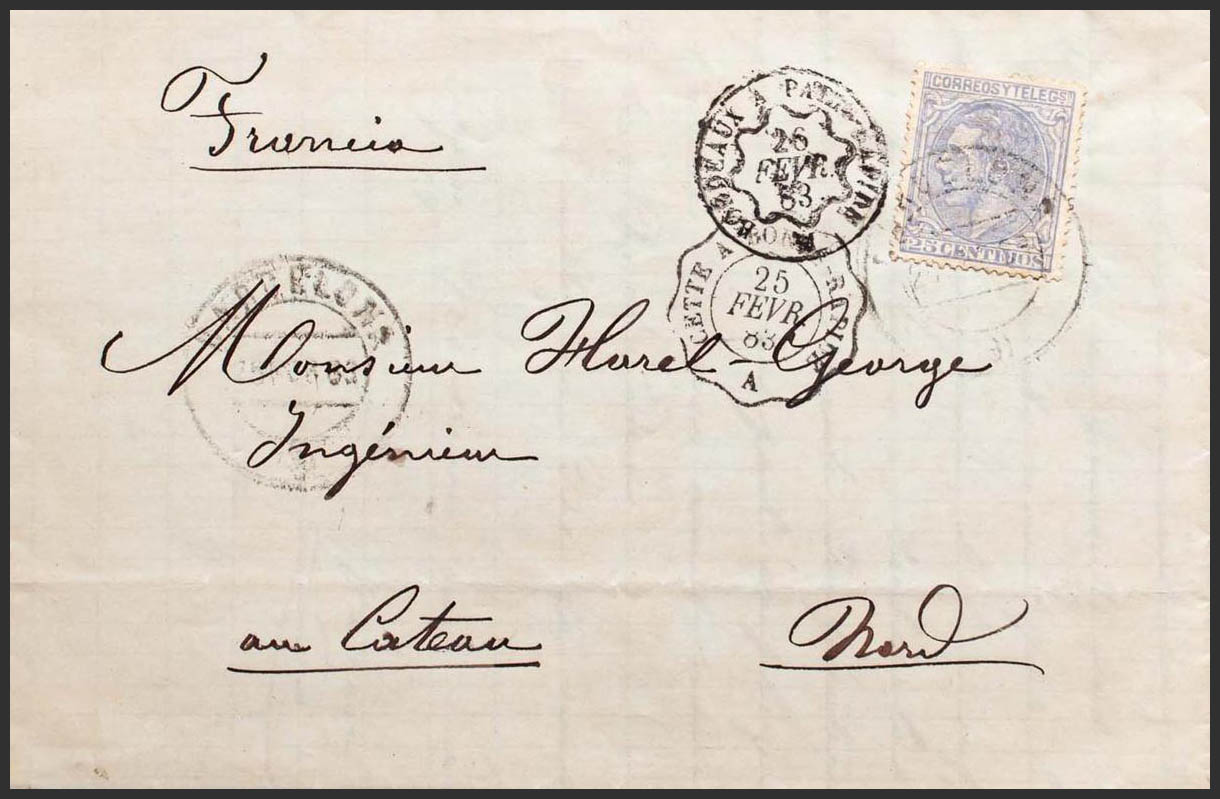 Francia
CORREOS Y TELEGS
25 CENTIMOS
BORDEAUX A PARIS RAPIDE
26
FEVR.
83
CETTE A
25
FEVR
83
A
BARCELONA
Monsieur Harel-George
Ingénieur
au Cateau Nord